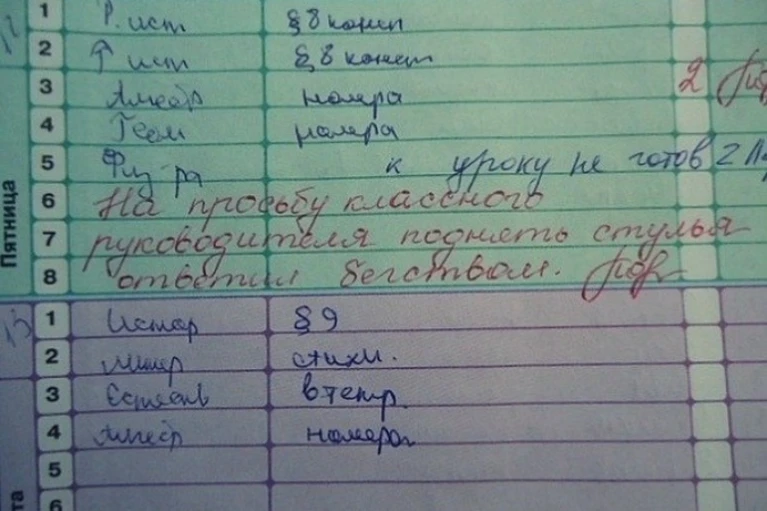 1 Р. ист §8 консп
2 Р ист §8 конспт
3 Алгебр номера 2
4 Геом номера
5 Физ-ра к уроку не готов 2
Пятница
6 На просьбу классного
7 руководителя поднять стулья
8 ответил бегством.
13
1 Истор §9
2 Литер стихи.
3 Естеств в тетр.
4 Алгебр номера
5
6
та